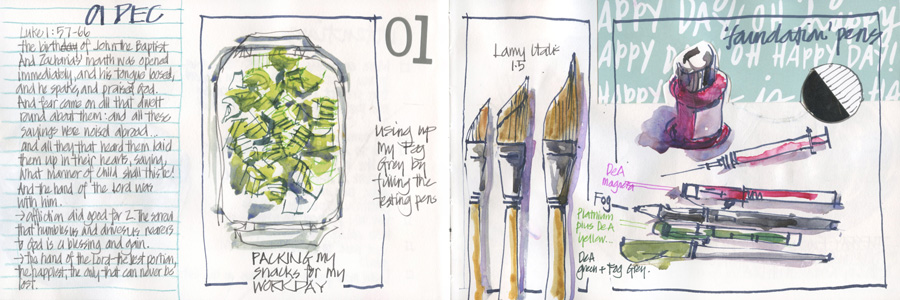 01 DEC
Luke 1:57-66
the birthday of John the Baptist
And Zacharias' mouth was opened
immediately, and his tongue loosed,
and he spake, and praised God.
And fear came on all that dwelt
round about them: and all these
sayings were noised abroad...
and all they that heard them laid
them up in their hearts, saying,
What manner of child shall this be!
And the hand of the Lord was
with him.
→ affliction did good for Z. The
that humbles us and drives us nearer
to God is a blessing and gain.
→ the hand of the Lord-the best portion,
the happiest, the only that can never be
lost.
PACKING my
snacks for my
WORKDAY
01
Using up
my Fog
Grey by
filling the
testing pens
Lamy Italic
1.5
'foundation' pens
APPY DAY! OH HAPPY
APPY DAY! OH HAPPY DAY!
HAPPY
DeA
magenta
Fog
Platnium
plus DeA
yellow...
DeA
green + Fog Grey.